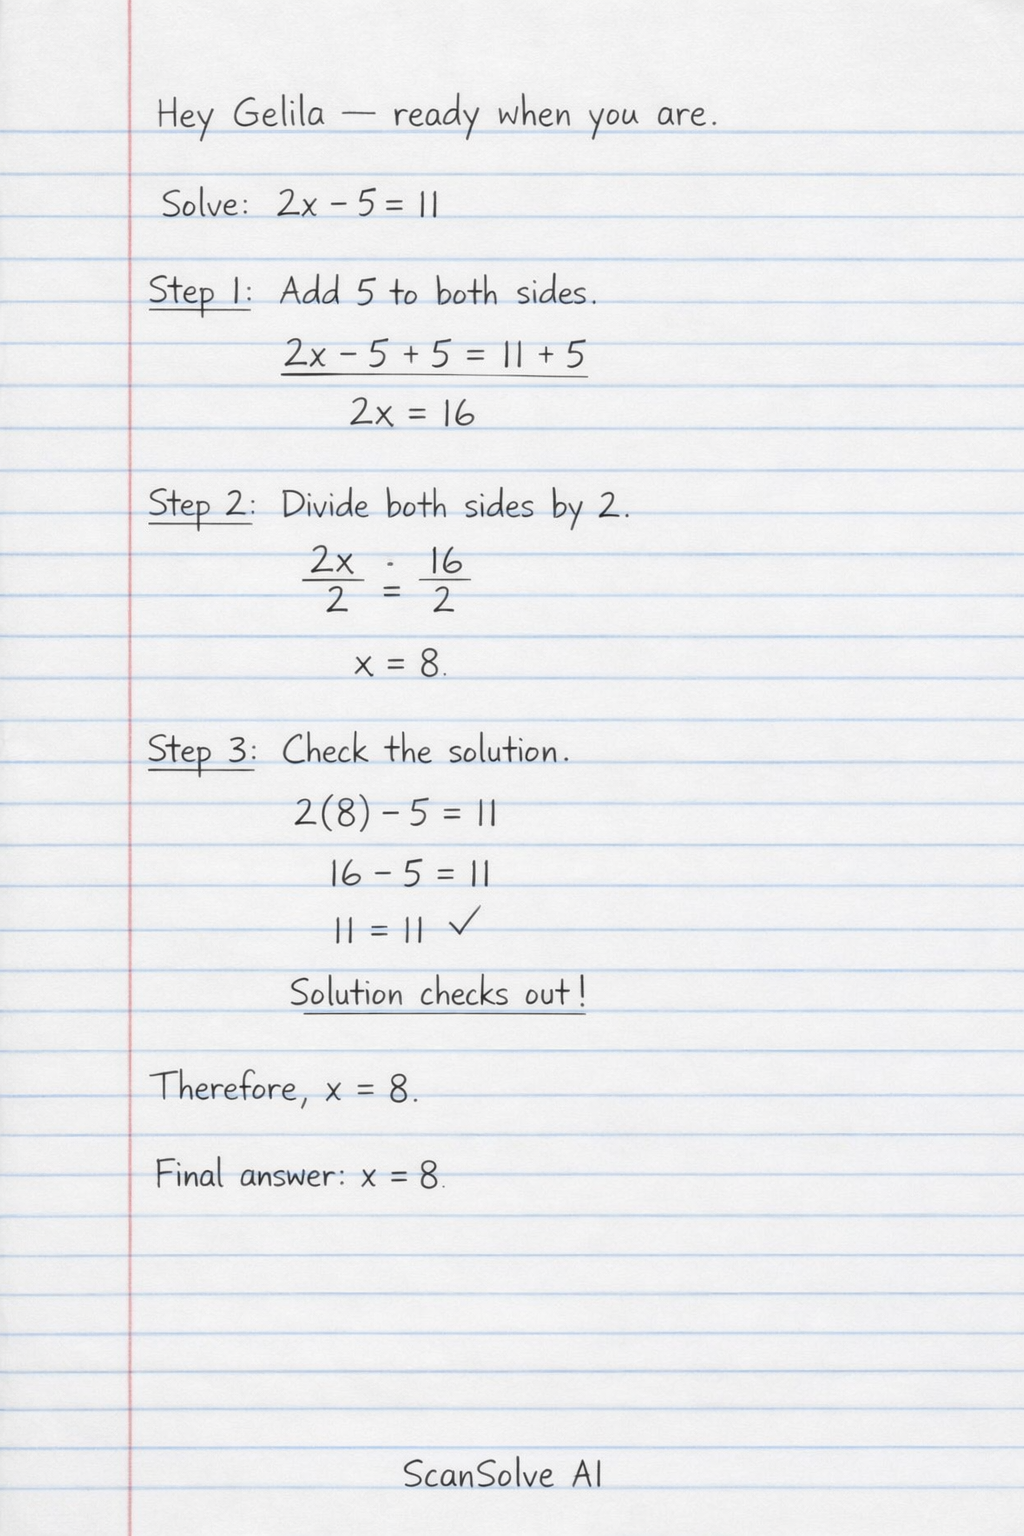 Hey Gelila — ready when you are.
Solve: 2x - 5 = 11
Step 1: Add 5 to both sides.
2x - 5 + 5 = 11 + 5
2x = 16
Step 2: Divide both sides by 2.
2x/2 = 16/2
x = 8.
Step 3: Check the solution.
2(8) - 5 = 11
16 - 5 = 11
11 = 11 ✓
Solution checks out!
Therefore, x = 8.
Final answer: x = 8.
ScanSolve AI